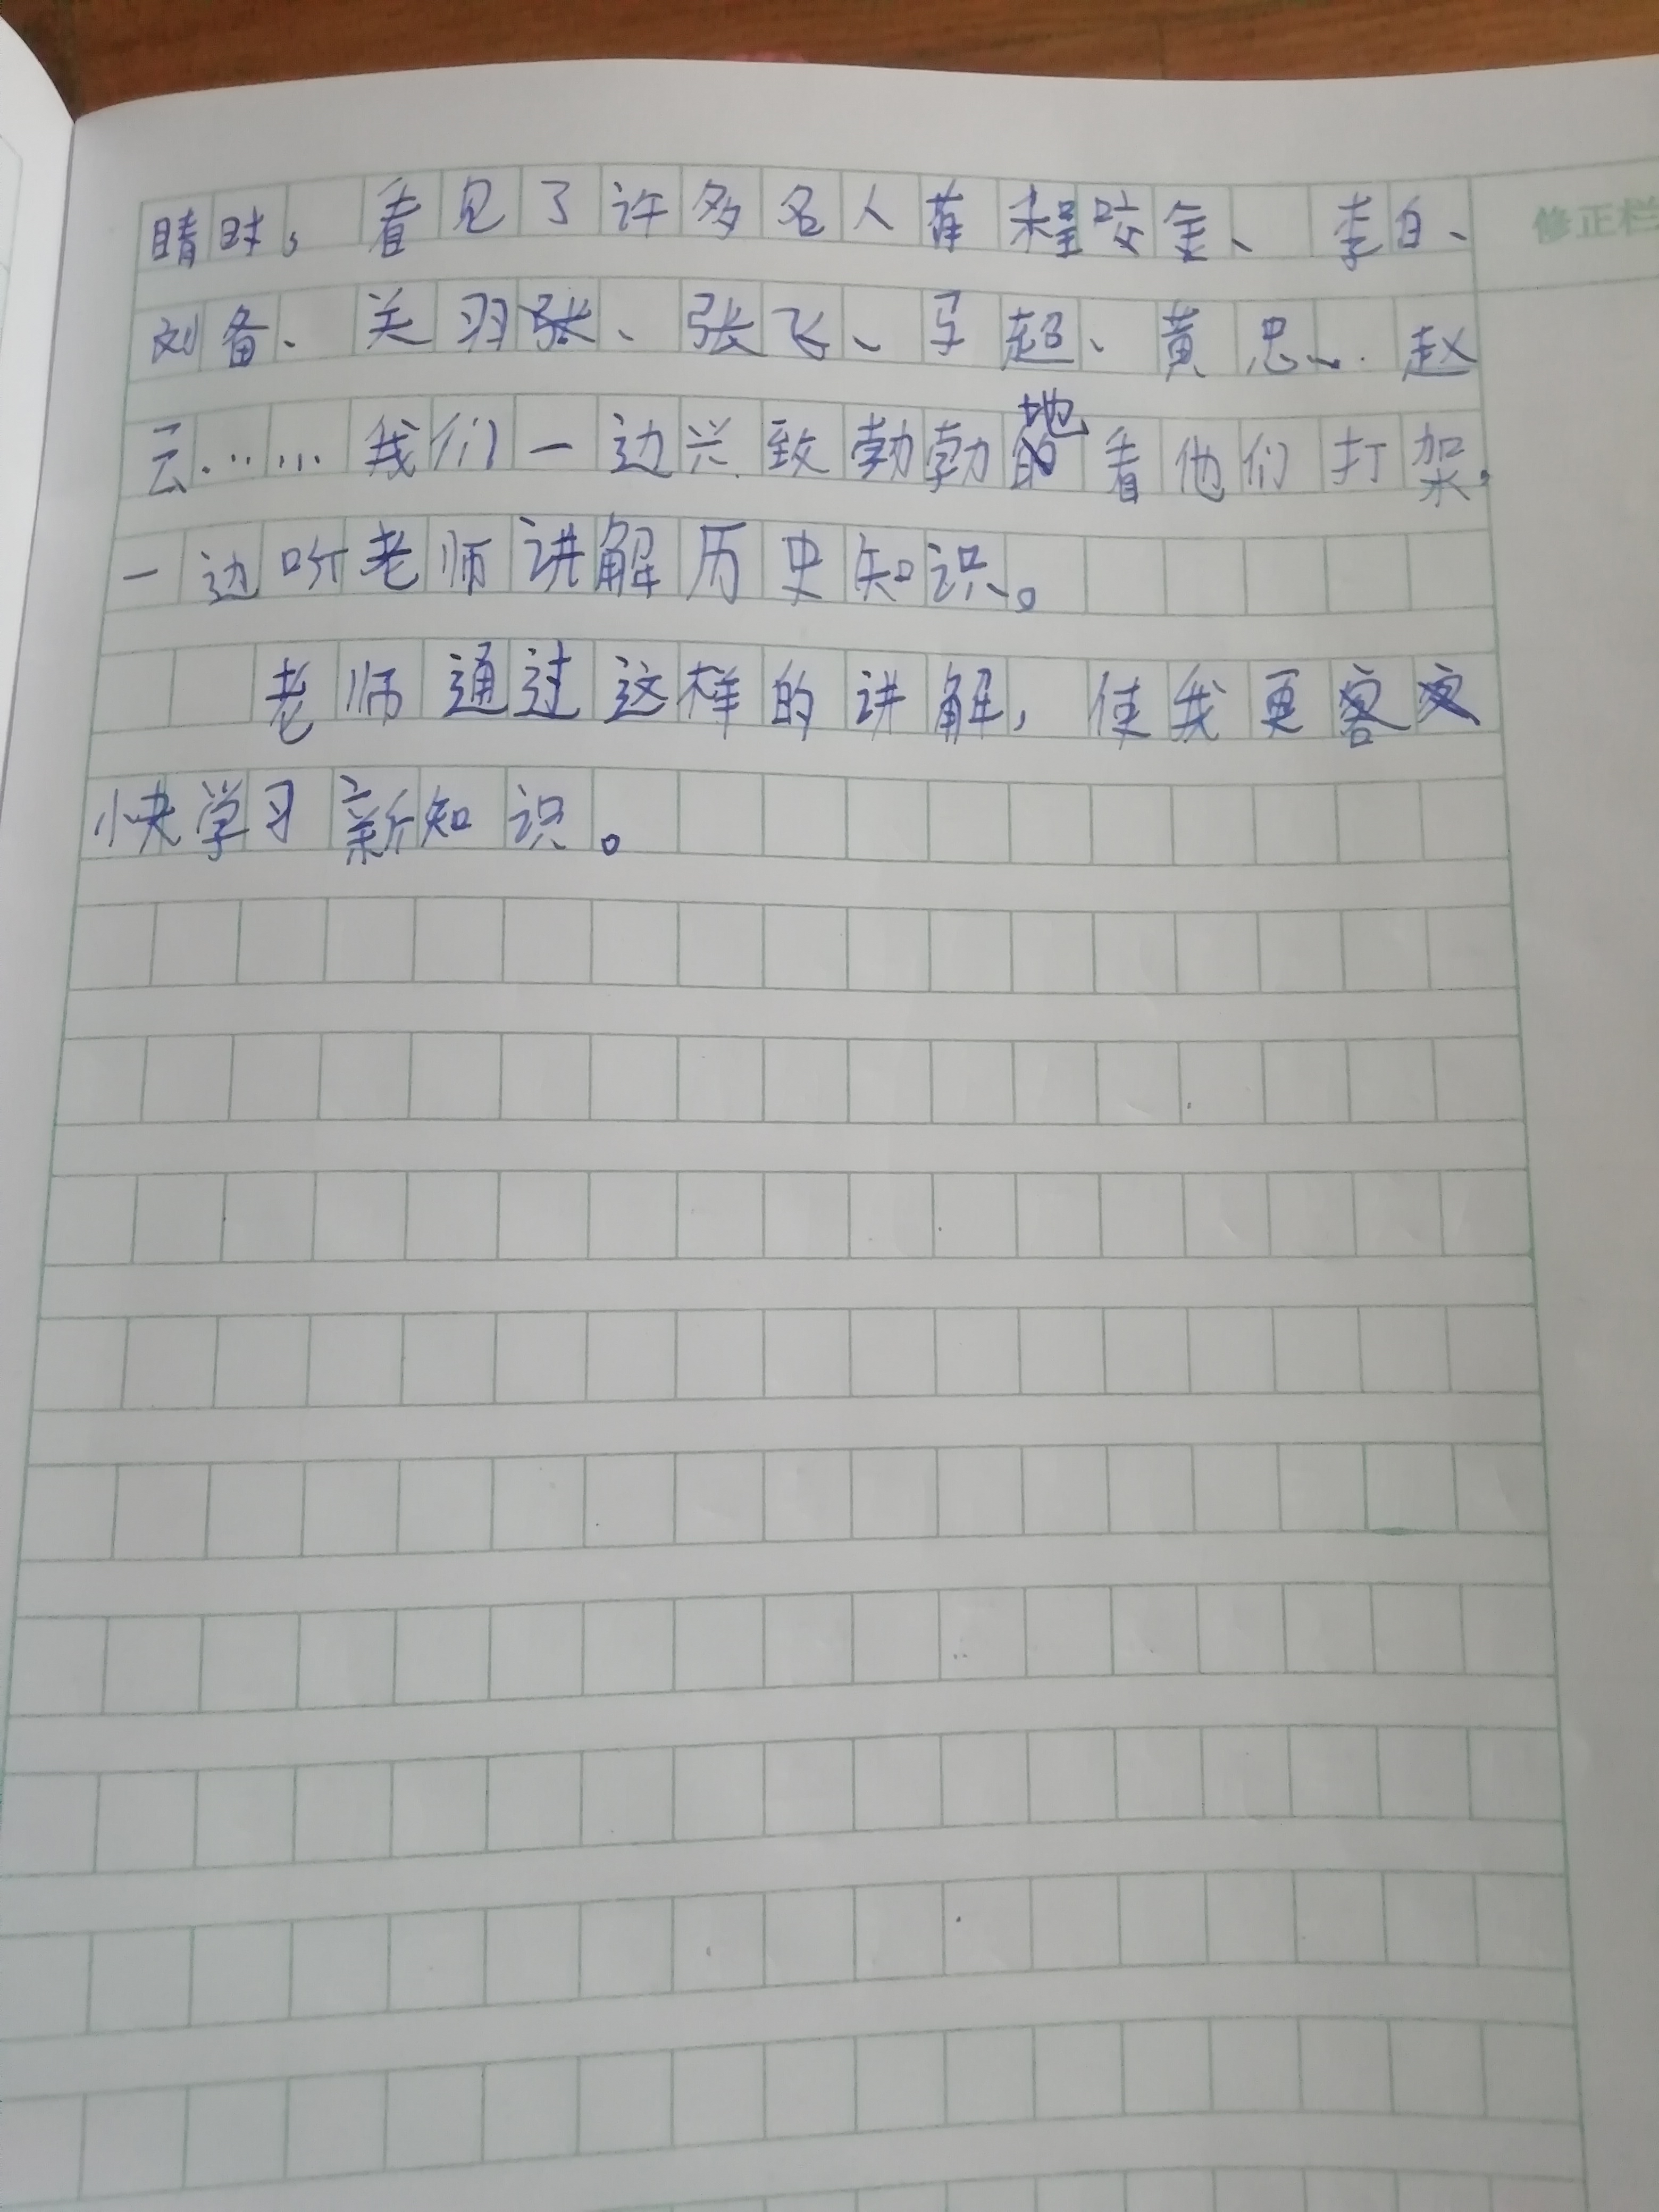 睛时，看见了许多名人有程咬金、李白、
修正栏
刘备、关羽、张飞、马超、黄忠、赵
云……我们一边兴致勃勃地看他们打架，
一边听老师讲解历史知识。
老师通过这样的讲解，使我更
快学习新知识。